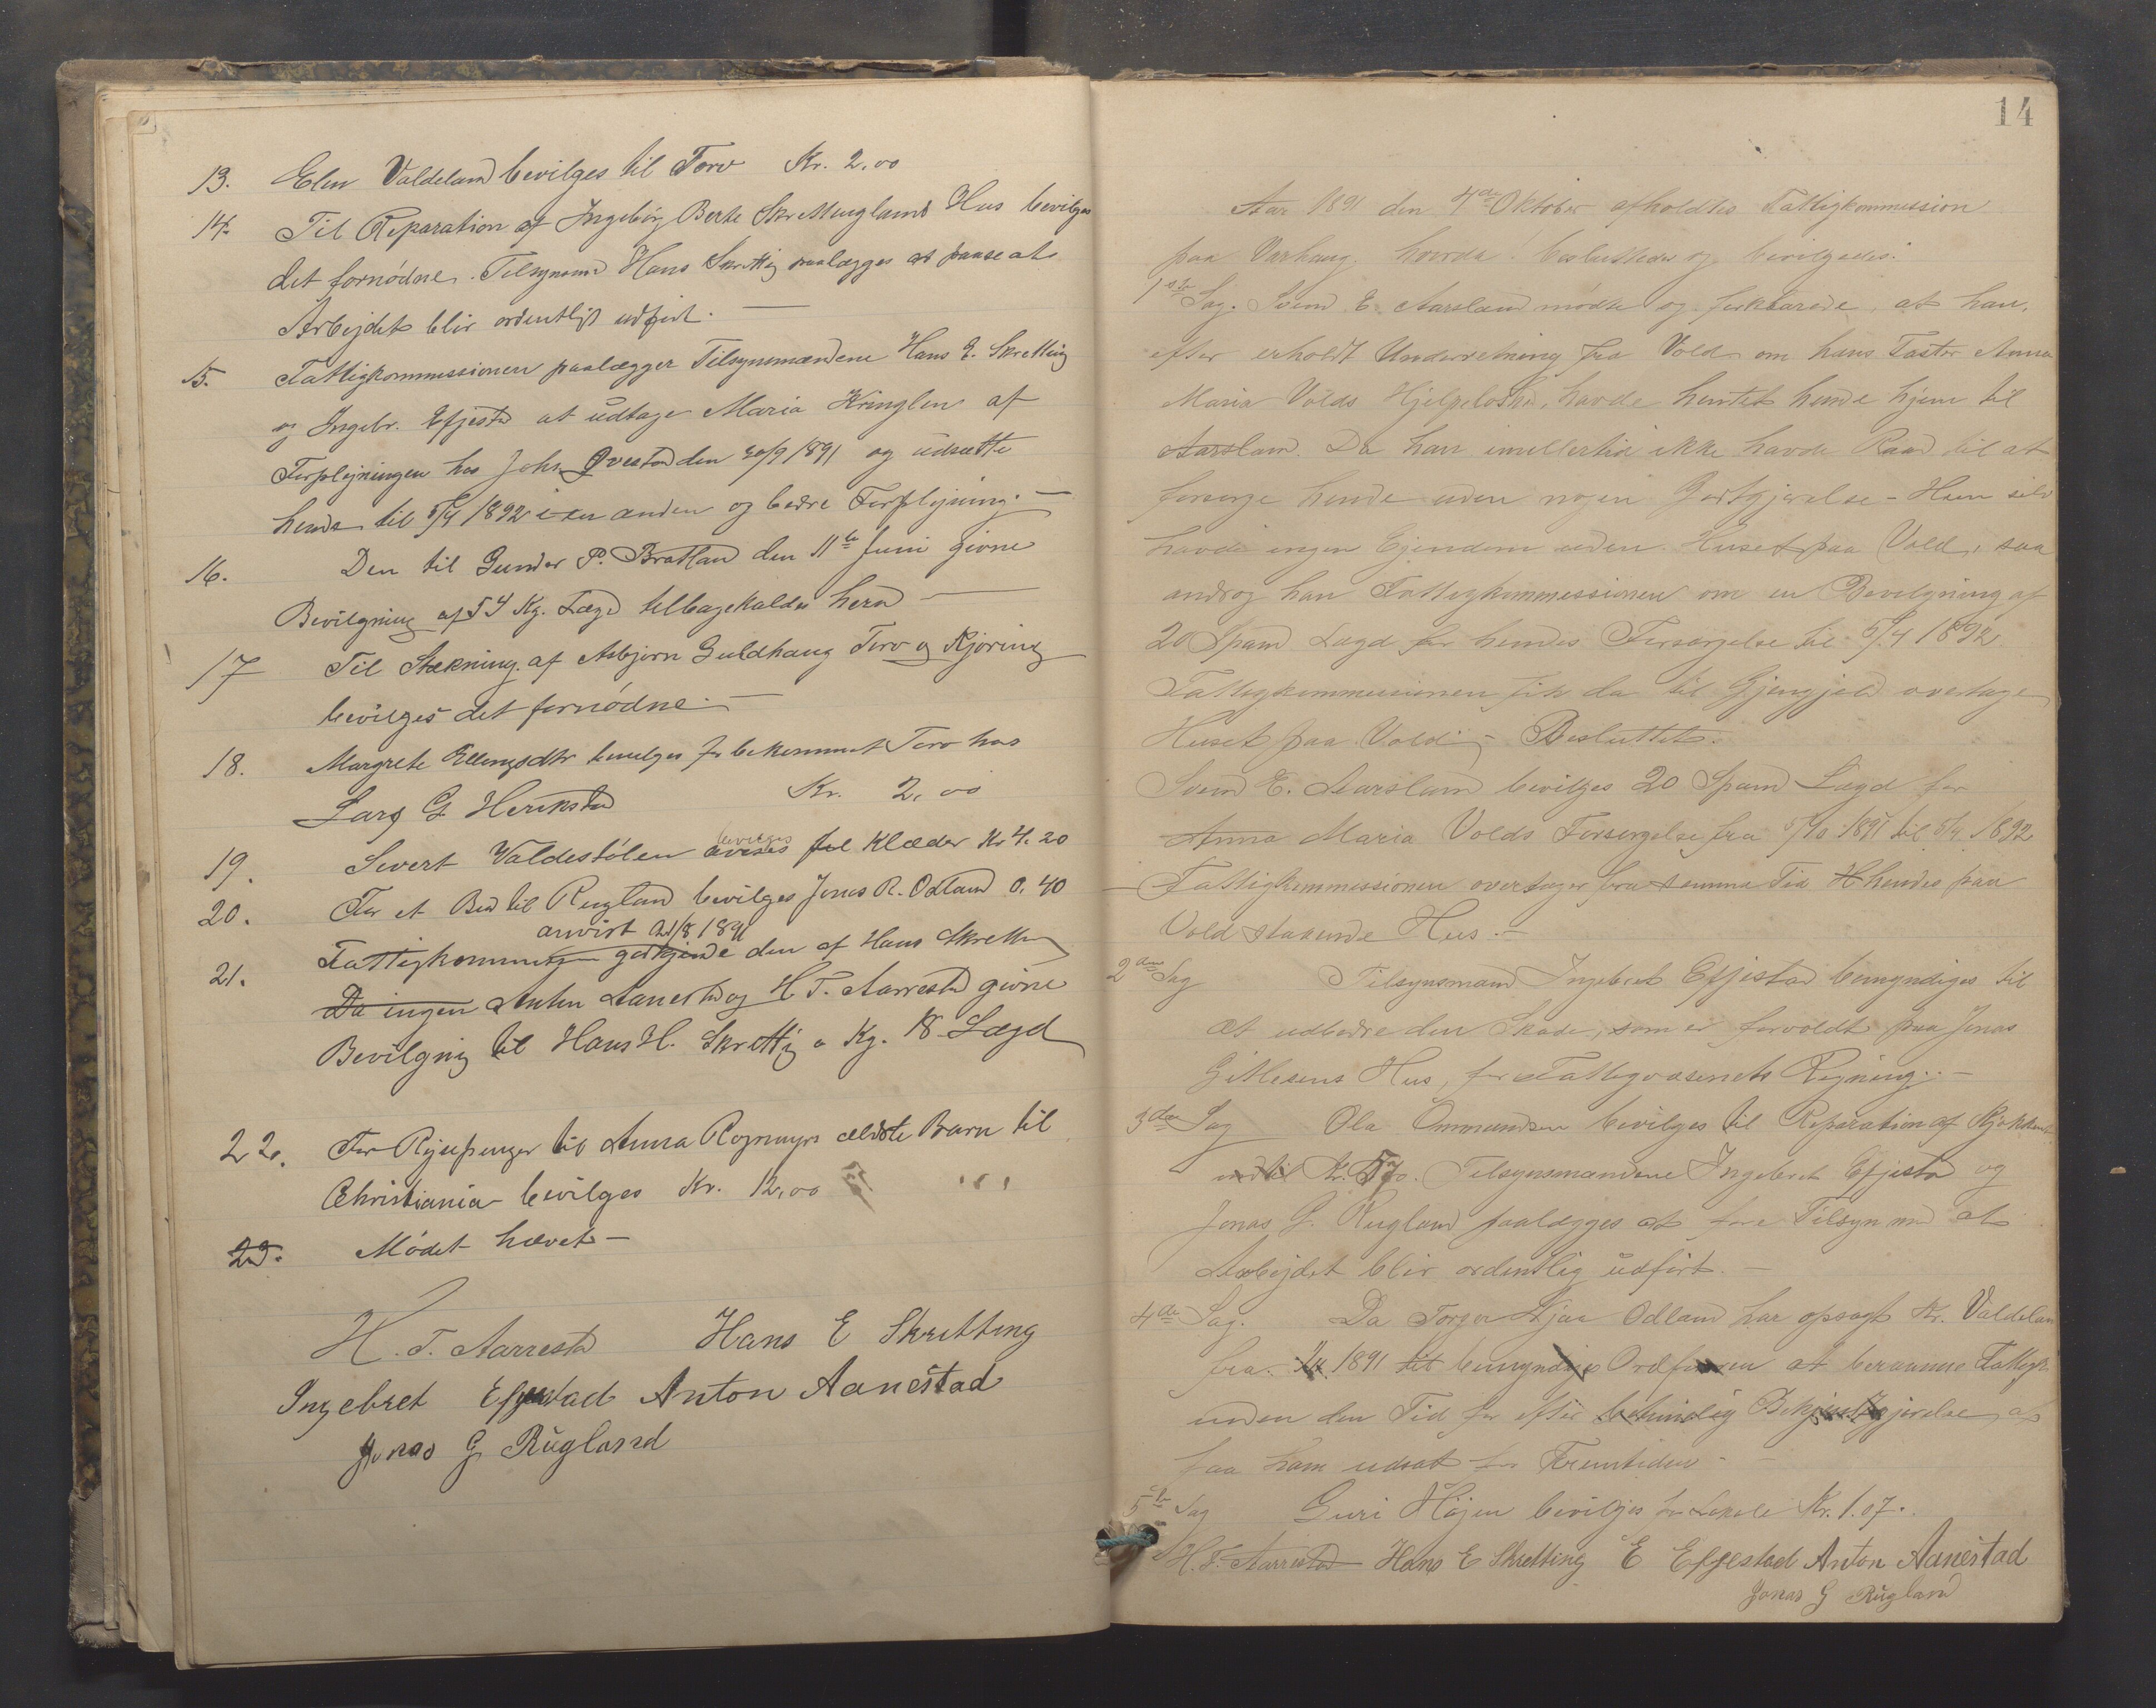 13. Elen Valdeland bevilges til Torv Kr. 2.00
14. Til Reparation af Ingebórg Berte Skrettinglands Hus bevilges
det fornódne. Tilsynsmd Hans Skrettig paalægges at paase at
Arbejdet blir ordentligt udfórt. —
15. Fattigkommissionen paalægger Tilsynsmændene Hans E. Skretting
og Ingebr. Efjestd at udtage Maria Kringlen af
Forplejningen hos John Qvestad den 30/9 1891 og udsætte
hende til 5/4 1892 i en anden og bedre Forplejning. —
16. Den til Gunder P. Bratland den 11te Juni givne
Bevilgning af 54 Kg. Lægd tilbagekaldes herd —
17 Til Stækning af Asbjørn Guldhaug Torv og Kjøring
bevilges det fornódne. —
18. Margrete Ellingsdtr bevilges for bekommet Torv hos
Lars G. Herikstad Kr. 2,00
19. Sivert Valdestólen bevilges til Klæder Kr 4.20
20. For et Bud til Rugland bevilges Jonas R. Odland 0.40
anvist 21/8 1891
21. Fattigkommisjn godkjende den af Hans Skretting
Da ingen Anton Aanestad og H. T. Aarrestd givne
Bevilgnig til Hans H. Skrettig a Kg. 18 Lægd
22. For Rejsepenger til Anna Rogmyrs ældste Barn til
Christiania bevilges Kr. 12,00
23. Módet hævet —
H. T. Aarrestd Hans E Skretting
Ingebret Efjestad Anton Aanestad
Jonas G Rugland
14
Aar 1891 den 4de Oktober afholdtes Fattigkommission
paa Varhaug, hvorda besluttedes og bevilgedes:
1ste Sag. Svend E. Aarsland mødte og forklarede, at han,
efter erholdt Underretning fra Vold om hans Faster Anna
Maria Volds Hjelpeløshed, havde hentet hende hjem til
Aarsland. Da han imidlertid ikke havde Raad til at
forsørge hende uden nogen Godtgjørelse – Hun selv
havde ingen Ejendom uden Huset paa Vold, saa
androg han Fattigkommissionen om en Bevilgning af
20 Spand Lægd for hendes Forsørgelse til 5/4 1892.
Fattigkommissionen fik da til Gjengjeld overtage
Huset paa Vold; – Besluttet.
Svend E. Aarsland bevilges 20 Spand Lægd for
Anna Maria Volds Forsørgelse fra 5/10 1891 til 5/4 1892
– Fattigkommissionen overtager fra samme Tid hendes paa
Vold staaende Hus. –
2den Sag Tilsynsmand Ingebret Efjestad bemyndiges til
at udbedre den Skade, som er forvoldt paa Jonas
Gitlesens Hus, for Fattigvæsenets Regning. –
3die Sag Ola Ommundsen bevilges til Reparation af Kjøkken
indtil Kr. Tilsynsmændene Ingebret Efjestd og
Jonas G. Rugland paalægges at føre Tilsyn md at
Arbejdet blir ordentlig udfórt. –
4de Sag. Da Torger Njaa Odland har opsagt Kr. Valdeland
fra 1891 bemyndiges Ordføreren at beramme Fattigk.
inden den Tid for efter Bekjendtgjørelse at
faa ham udsat for Fremtiden –
5te Sag Guri Højen bevilges for Lokale Kr. 1.07.
H. T. Aarrestad Hans E Skretting E Efjestad Anton Aanestad
Jonas G Rugland